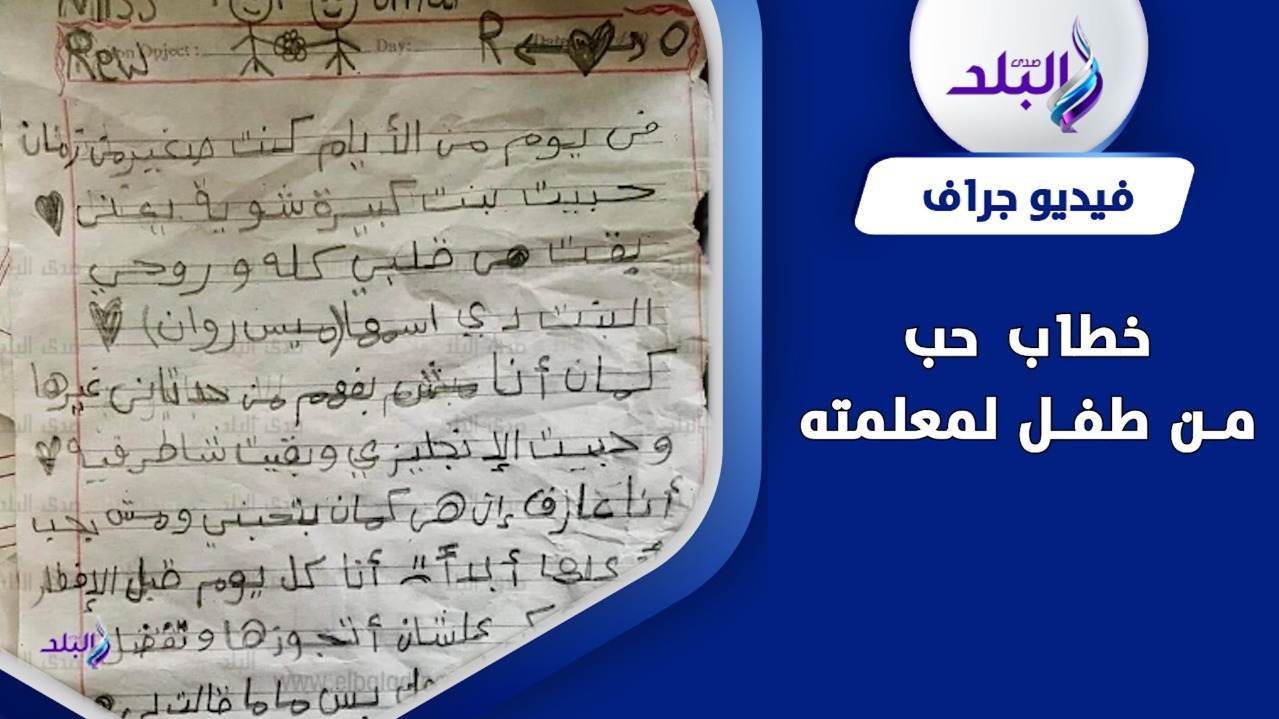 Miss Omar
Rew R O
Day:
في يوم من الأيام كنت صغير من زمان
حبيت بنت كبيرة شوية يعني
بقت هي قلبي كله و روحي
البنت دي اسمها (ميس روان)
كمان أنا مش بفهم من حد تاني غيرها
و حبيت الإنجليزي وبقيت شاطر فيه
أنا عارف إن هي كمان بتحبني ومش بحب
أزعلها أبدأ أنا كل يوم قبل الإفطار
علشان أتجوزها و تفضل
بس ماما قالت لي
البلد
صدى
البلد
فيديو جراف
خطاب حب
من طفل لمعلمته